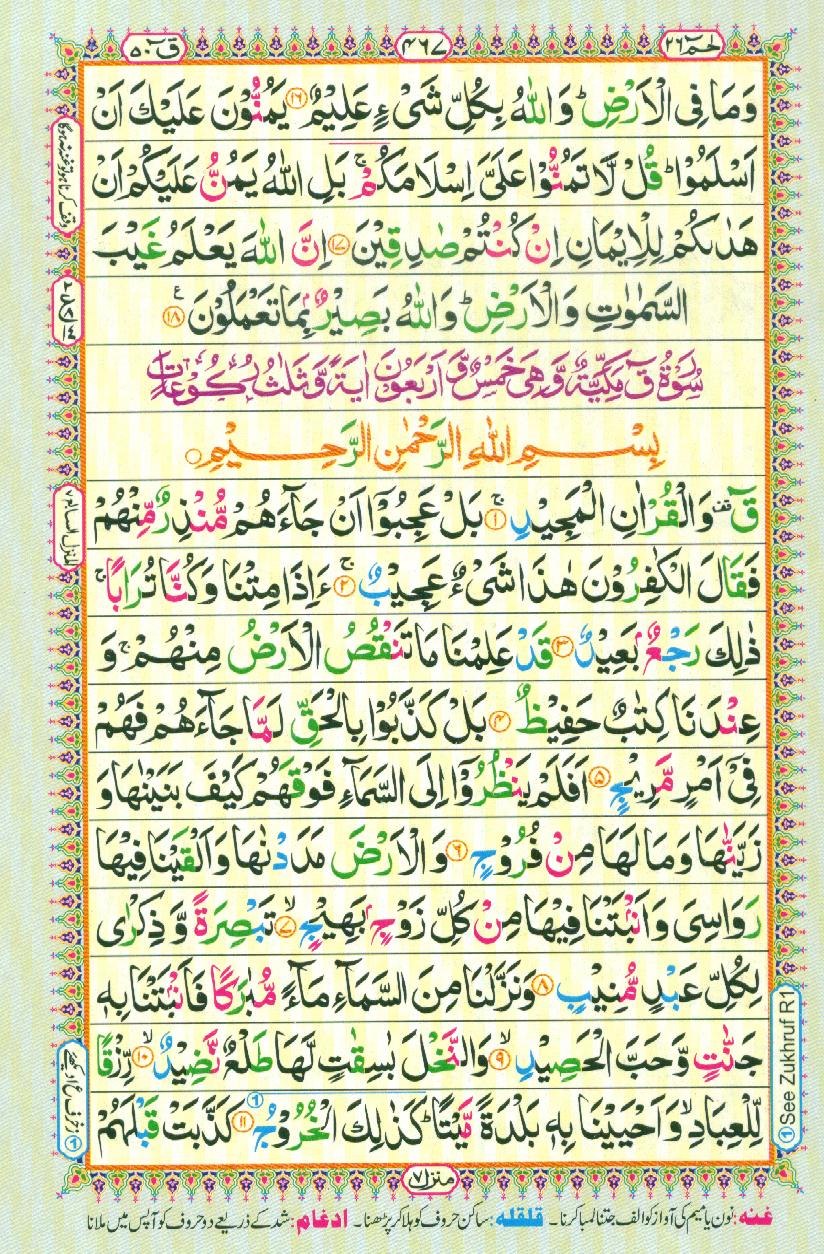 حٰمٓ ٢٦
٤٦٧
قٓ ٥٠
وَمَا فِى الْاَرْضِ ؕ وَاللّٰهُ بِكُلِّ شَىْءٍ عَلِيْمٌ ﴿۱۶﴾ يَمُنُّوْنَ عَلَيْكَ اَنْ
اَسْلَمُوْا ؕ قُلْ لَّا تَمُنُّوْا عَلَىَّ اِسْلَامَكُمْ ۚ بَلِ اللّٰهُ يَمُنُّ عَلَيْكُمْ اَنْ
هَدٰٮكُمْ لِلْاِيْمَانِ اِنْ كُنْتُمْ صٰدِقِيْنَ ﴿۱۷﴾ اِنَّ اللّٰهَ يَعْلَمُ غَيْبَ
السَّمٰوٰتِ وَالْاَرْضِ ؕ وَاللّٰهُ بَصِيْرٌۢ بِمَا تَعْمَلُوْنَ ﴿۱۸﴾ ع
سُوْرَةُ قٓ مَكِّيَّةٌ وَّهِىَ خَمْسٌ وَّ اَرْبَعُوْنَ اٰيَةً وَّثَلٰثُ رُكُوْعَاتٍ
بِسْمِ اللّٰهِ الرَّحْمٰنِ الرَّحِيْمِ
قٓ ۚ وَالْقُرْاٰنِ الْمَجِيْدِ ۚ ﴿۱﴾ بَلْ عَجِبُوْۤا اَنْ جَآءَهُمْ مُّنْذِرٌ مِّنْهُمْ
فَقَالَ الْكٰفِرُوْنَ هٰذَا شَىْءٌ عَجِيْبٌ ۚ ﴿۲﴾ ءَاِذَا مِتْنَا وَكُنَّا تُرَابًا ۚ
ذٰلِكَ رَجْعٌۢ بَعِيْدٌ ﴿۳﴾ قَدْ عَلِمْنَا مَا تَنْقُصُ الْاَرْضُ مِنْهُمْ ۚ وَ
عِنْدَنَا كِتٰبٌ حَفِيْظٌ ﴿۴﴾ بَلْ كَذَّبُوْا بِالْحَقِّ لَمَّا جَآءَهُمْ فَهُمْ
فِىْۤ اَمْرٍ مَّرِيْجٍ ﴿۵﴾ اَفَلَمْ يَنْظُرُوْۤا اِلَى السَّمَآءِ فَوْقَهُمْ كَيْفَ بَنَيْنٰهَا وَ
زَيَّنّٰهَا وَمَا لَهَا مِنْ فُرُوْجٍ ﴿۶﴾ وَالْاَرْضَ مَدَدْنٰهَا وَاَلْقَيْنَا فِيْهَا
رَوَاسِىَ وَاَنْۢبَتْنَا فِيْهَا مِنْ كُلِّ زَوْجٍۢ بَهِيْجٍ ۙ ﴿۷﴾ تَبْصِرَةً وَّ ذِكْرٰى
لِكُلِّ عَبْدٍ مُّنِيْبٍ ﴿۸﴾ وَنَزَّلْنَا مِنَ السَّمَآءِ مَآءً مُّبٰرَكًا فَاَنْۢبَتْنَا بِهٖ
جَنّٰتٍ وَّحَبَّ الْحَصِيْدِ ۙ ﴿۹﴾ وَالنَّخْلَ بٰسِقٰتٍ لَّهَا طَلْعٌ نَّضِيْدٌ ۙ ﴿۱۰﴾ رِّزْقًا
لِّلْعِبَادِ ۙ وَاَحْيَيْنَا بِهٖ بَلْدَةً مَّيْتًا ؕ كَذٰلِكَ الْخُرُوْجُ ﴿۱۱﴾ كَذَّبَتْ قَبْلَهُمْ
منزل ۷
① See Zukhruf R1
غنه: نون یا میم کی آواز کو الف جتنا لمبا کرنا۔ قلقله: ساکن حروف کو ہلا کر پڑھنا۔ ادغام: شد کے ذریعے دو حروف کو آپس میں ملانا